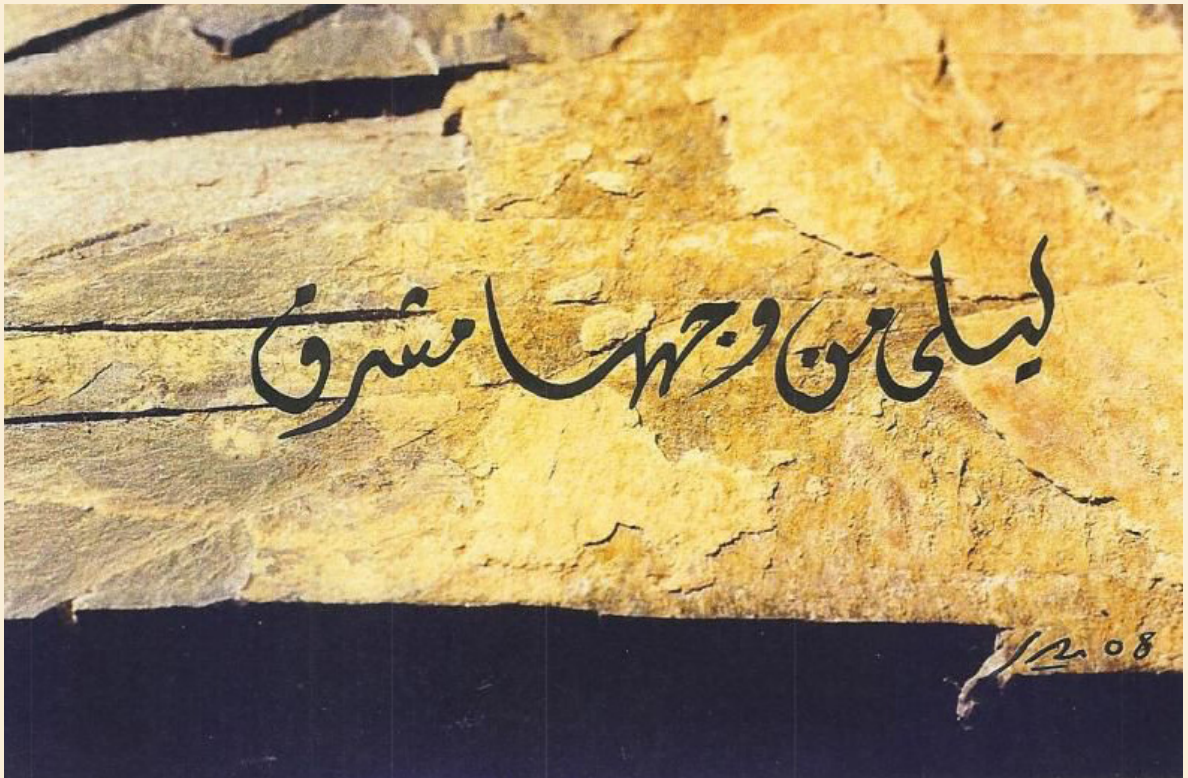 ليلى من وجهها مشرق
08